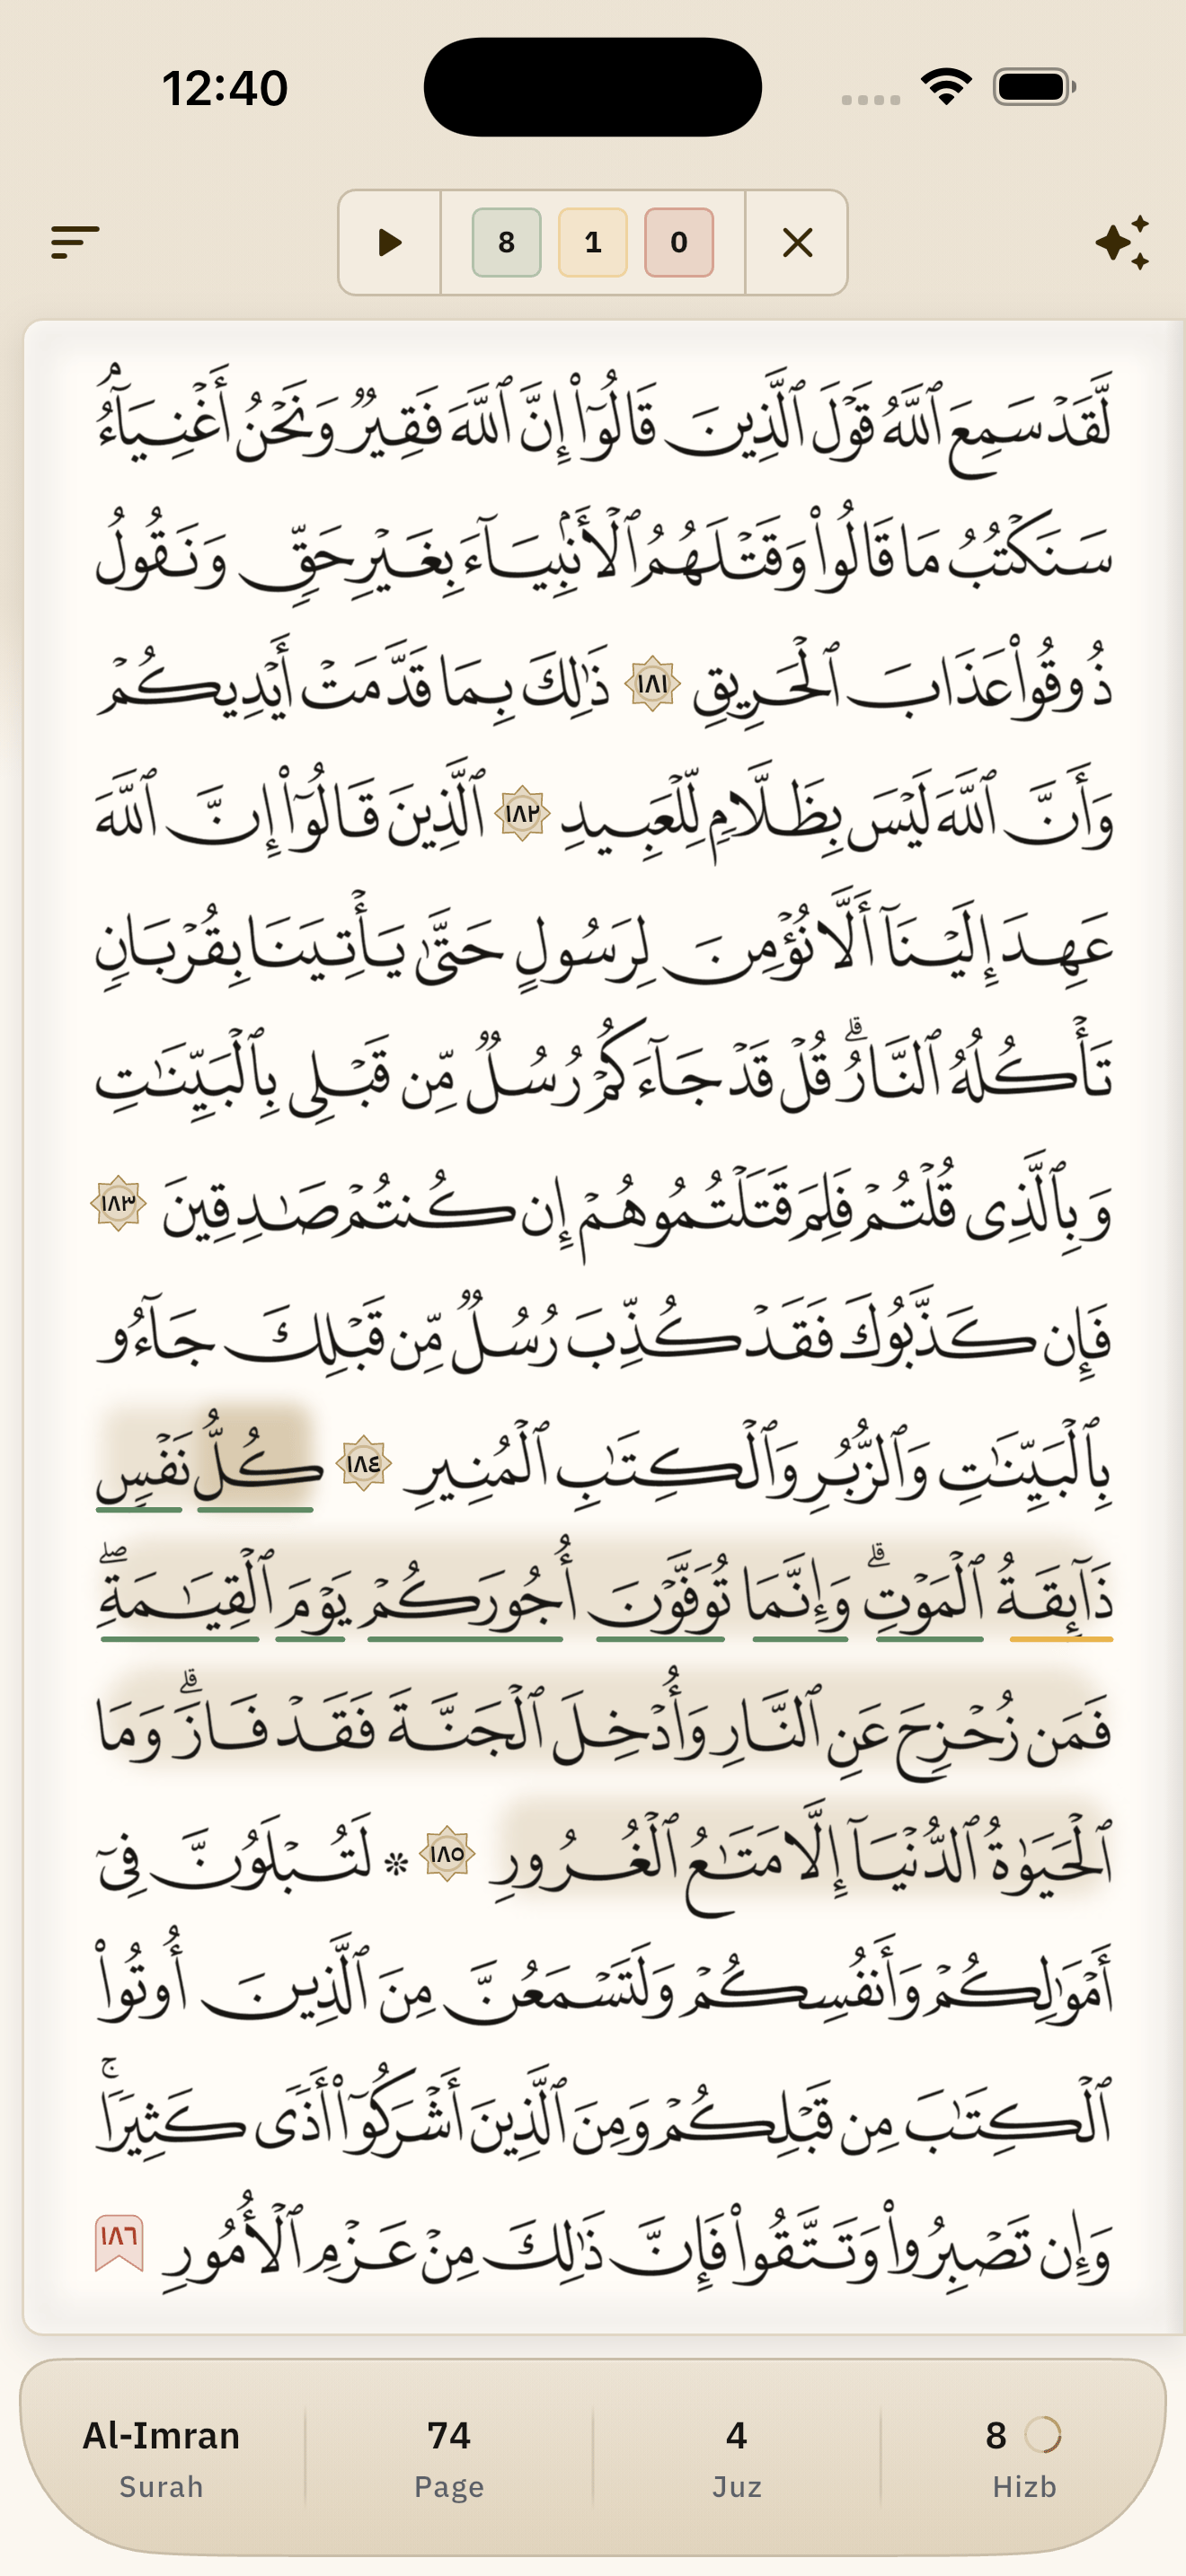 12:40
8 1 0
لَّقَدْ سَمِعَ ٱللَّهُ قَوْلَ ٱلَّذِينَ قَالُوٓا۟ إِنَّ ٱللَّهَ فَقِيرٌ وَنَحْنُ أَغْنِيَآءُ ۘ
سَنَكْتُبُ مَا قَالُوا۟ وَقَتْلَهُمُ ٱلْأَنۢبِيَآءَ بِغَيْرِ حَقٍّ وَنَقُولُ
ذُوقُوا۟ عَذَابَ ٱلْحَرِيقِ ١٨١ ذَٰلِكَ بِمَا قَدَّمَتْ أَيْدِيكُمْ
وَأَنَّ ٱللَّهَ لَيْسَ بِظَلَّامٍ لِّلْعَبِيدِ ١٨٢ ٱلَّذِينَ قَالُوٓا۟ إِنَّ ٱللَّهَ
عَهِدَ إِلَيْنَآ أَلَّا نُؤْمِنَ لِرَسُولٍ حَتَّىٰ يَأْتِيَنَا بِقُرْبَانٍ
تَأْكُلُهُ ٱلنَّارُ ۗ قُلْ قَدْ جَآءَكُمْ رُسُلٌ مِّن قَبْلِى بِٱلْبَيِّنَٰتِ
وَبِٱلَّذِى قُلْتُمْ فَلِمَ قَتَلْتُمُوهُمْ إِن كُنتُمْ صَٰدِقِينَ ١٨٣
فَإِن كَذَّبُوكَ فَقَدْ كُذِّبَ رُسُلٌ مِّن قَبْلِكَ جَآءُو
بِٱلْبَيِّنَٰتِ وَٱلزُّبُرِ وَٱلْكِتَٰبِ ٱلْمُنِيرِ ١٨٤ كُلُّ نَفْسٍ
ذَآئِقَةُ ٱلْمَوْتِ ۗ وَإِنَّمَا تُوَفَّوْنَ أُجُورَكُمْ يَوْمَ ٱلْقِيَٰمَةِ ۖ
فَمَن زُحْزِحَ عَنِ ٱلنَّارِ وَأُدْخِلَ ٱلْجَنَّةَ فَقَدْ فَازَ ۗ وَمَا
ٱلْحَيَوٰةُ ٱلدُّنْيَآ إِلَّا مَتَٰعُ ٱلْغُرُورِ ١٨٥ ۞ لَتُبْلَوُنَّ فِىٓ
أَمْوَٰلِكُمْ وَأَنفُسِكُمْ وَلَتَسْمَعُنَّ مِنَ ٱلَّذِينَ أُوتُوا۟
ٱلْكِتَٰبَ مِن قَبْلِكُمْ وَمِنَ ٱلَّذِينَ أَشْرَكُوٓا۟ أَذًى كَثِيرًا ۚ
وَإِن تَصْبِرُوا۟ وَتَتَّقُوا۟ فَإِنَّ ذَٰلِكَ مِنْ عَزْمِ ٱلْأُمُورِ ١٨٦
Al-Imran 74 4 8
Surah Page Juz Hizb